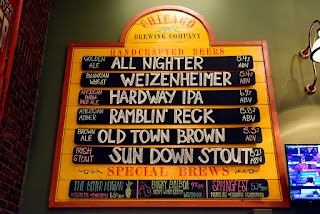 CHICAGO
BREWING COMPANY
HANDCRAFTED BEERS
GOLDEN ALE ALL NIGHTER 5.42 ABV
BAVARIAN WHEAT WEIZENHEIMER 5.47 ABV
AMERICAN INDIA PALE ALE HARDWAY IPA ABV
AMERICAN AMBER RAMBLIN' RECK ABV
BROWN ALE OLD TOWN BROWN 5.37 ABV
IRISH STOUT SUN DOWN STOUT ABV
SPECIAL BREWS
SPRINGFEST